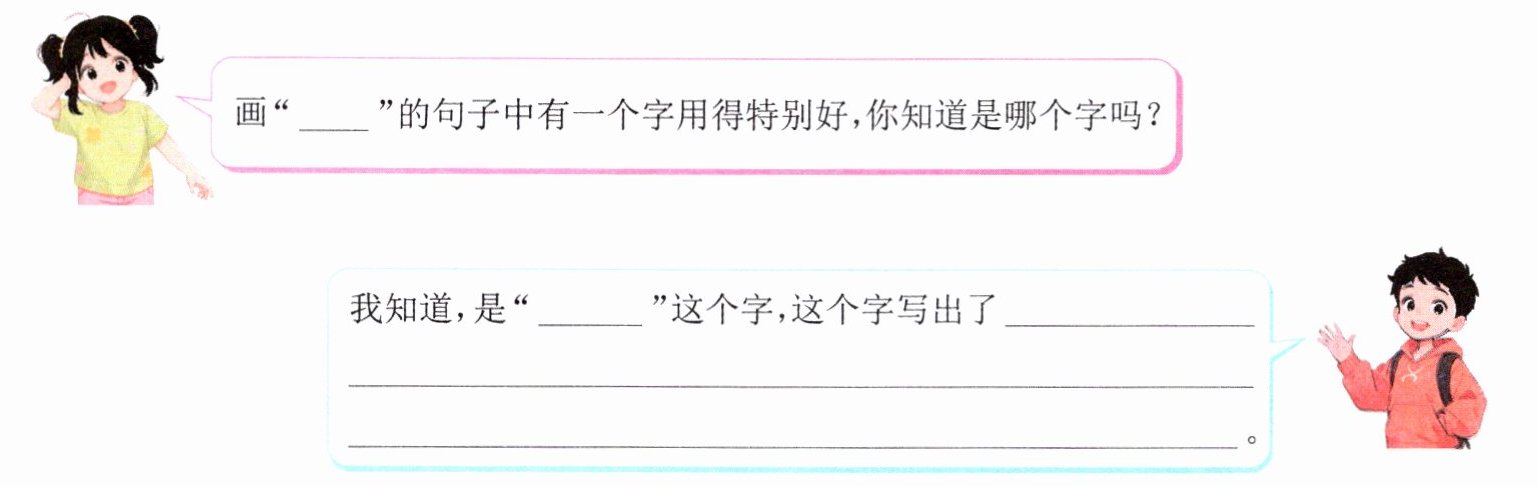 画“____”的句子中有一个字用得特别好,你知道是哪个字吗?
我知道,是“______”这个字,这个字写出了______________
____________________________________________________
___________________________________________________。